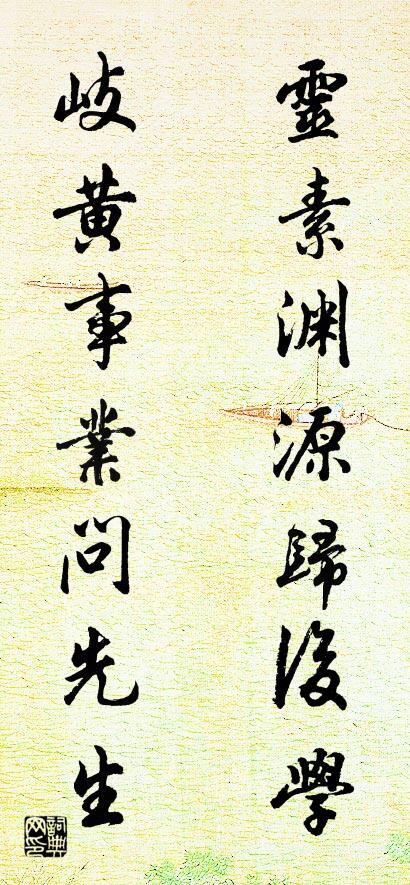 靈素淵源歸後學
岐黃事業問先生
詞典網印